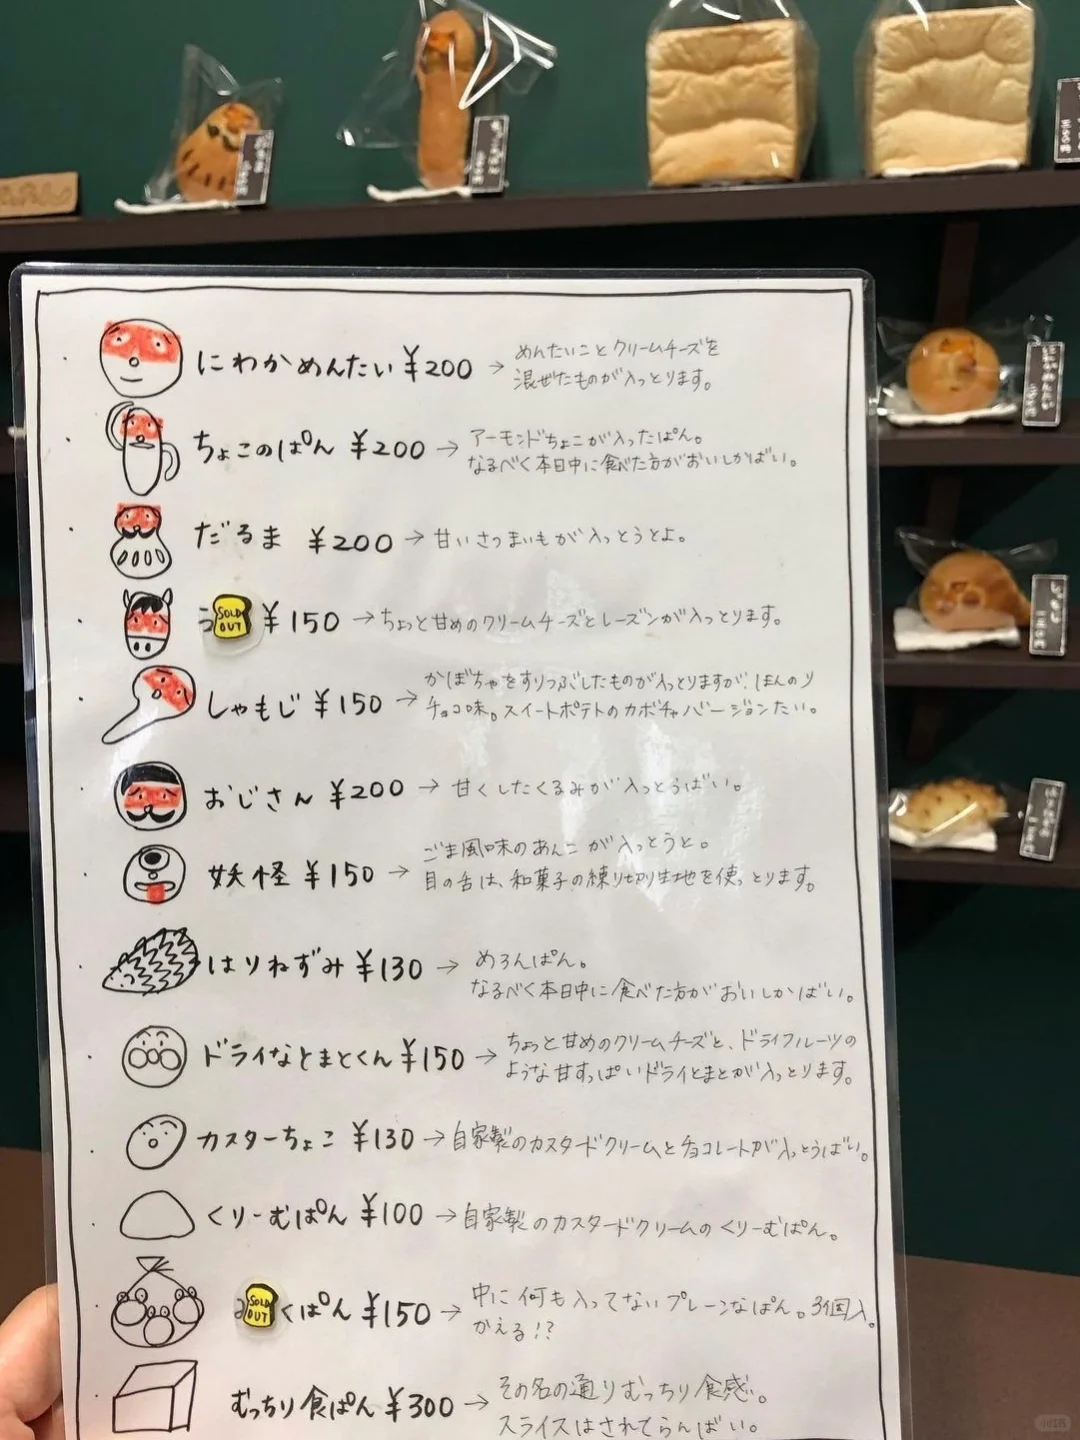 にわかめんたい ¥200 → めんたいことクリームチーズを
混ぜたものが入っとります。
ちょこのぱん ¥200 → アーモンドちょこが入ったぱん。
なるべく本日中に食べた方がおいしかばい。
だるま ¥200 → 甘いさつまいもが入っとうとよ。
う SOLD OUT ¥150 → ちょっと甘めのクリームチーズとレーズンが入っとります。
しゃもじ ¥150 → かぼちゃをすりつぶしたものが入っとりますが、ほんのり
チョコ味。スイートポテトのカボチャバージョンたい。
おじさん ¥200 → 甘くしたくるみが入っとうばい。
妖怪 ¥150 → ごま風味のあんこが入っとうと。
目の舌は、和菓子の練り切り生地を使っとります。
はりねずみ ¥130 → めろんぱん。
なるべく本日中に食べた方がおいしかばい。
ドライなとまとくん ¥150 → ちょっと甘めのクリームチーズと、ドライフルーツの
ような甘すっぱいドライとまとが入っとります。
カスターちょこ ¥130 → 自家製のカスタードクリームとチョコレートが入っとうばい。
くりーむぱん ¥100 → 自家製のカスタードクリームのくりーむぱん。
SOLD OUT くぱん ¥150 → 中に何も入ってないプレーンなぱん。3個入。
かえる!?
むっちり食ぱん ¥300 → その名の通りむっちり食感。
スライスはされてらんばい。